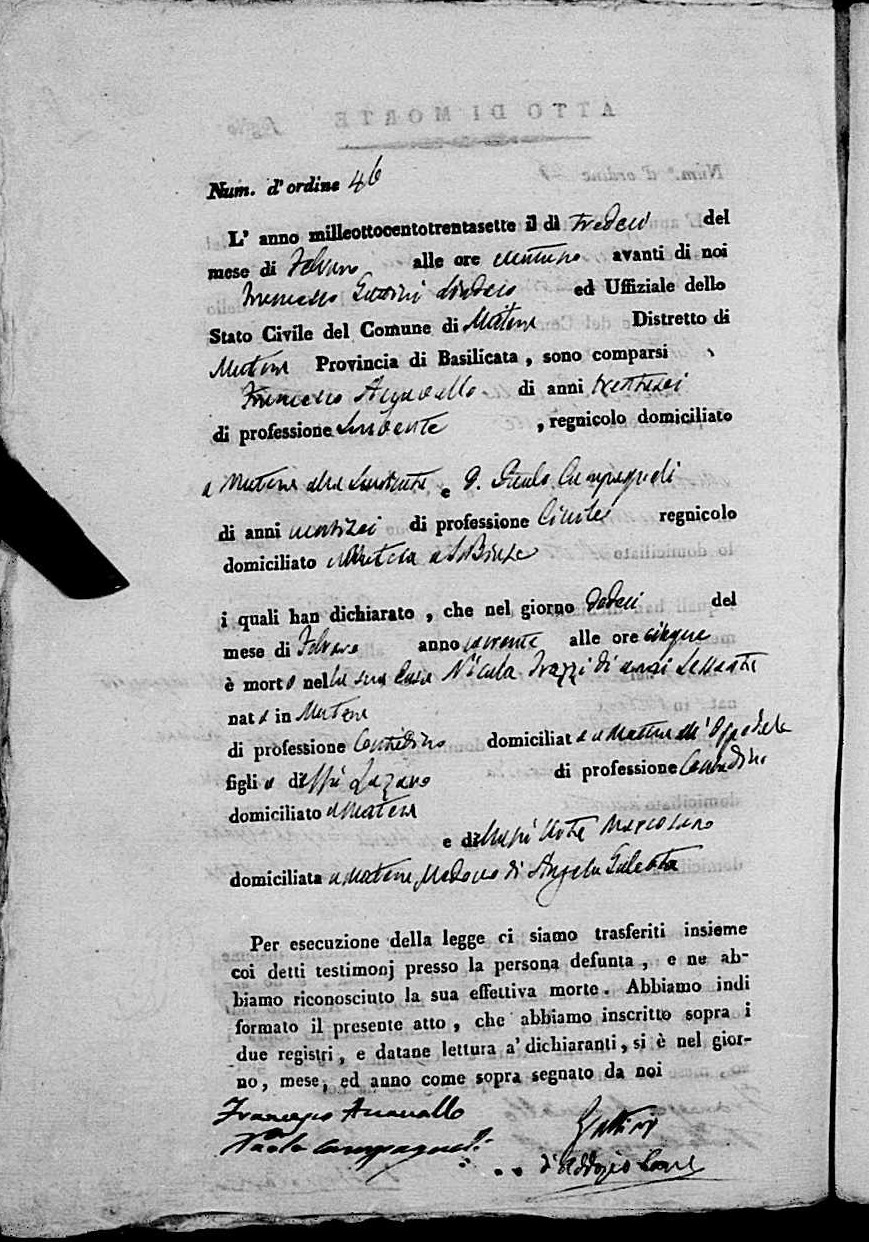 Num. d'ordine 46
L' anno milleottocentotrentasette il dì tredeci del
mese di Febraro alle ore avanti di noi
Francesco Gattini Sindaco ed Uffiziale dello
Stato Civile del Comune di Matera Distretto di
Matera Provincia di Basilicata , sono comparsi
Francesco Acquavallo di anni trentasei
di professione Serviente , regnicolo domiciliato
a Matera e D. Paolo Campagnoli
di anni di professione Civile regnicolo
domiciliato a Matera
i quali han dichiarato , che nel giorno dodeci del
mese di Febraro anno corrente alle ore cinque
è morto nella sua Casa Nicola Frazzi di anni sessanta
nato in Matera
di professione Contadino domiciliato a Matera
figlio di fù Lazaro di professione Contadino
domiciliato a Matera
e di
domiciliata a Matera, Vedovo di Angela
Per esecuzione della legge ci siamo trasferiti insieme
coi detti testimonj presso la persona defunta , e ne ab-
biamo riconosciuto la sua effettiva morte. Abbiamo indi
formato il presente atto , che abbiamo inscritto sopra i
due registri , e datane lettura a' dichiaranti , si è nel gior-
no, mese, ed anno come sopra segnato da noi
Francesco Acquavallo
Paolo Campagnoli
Gattini